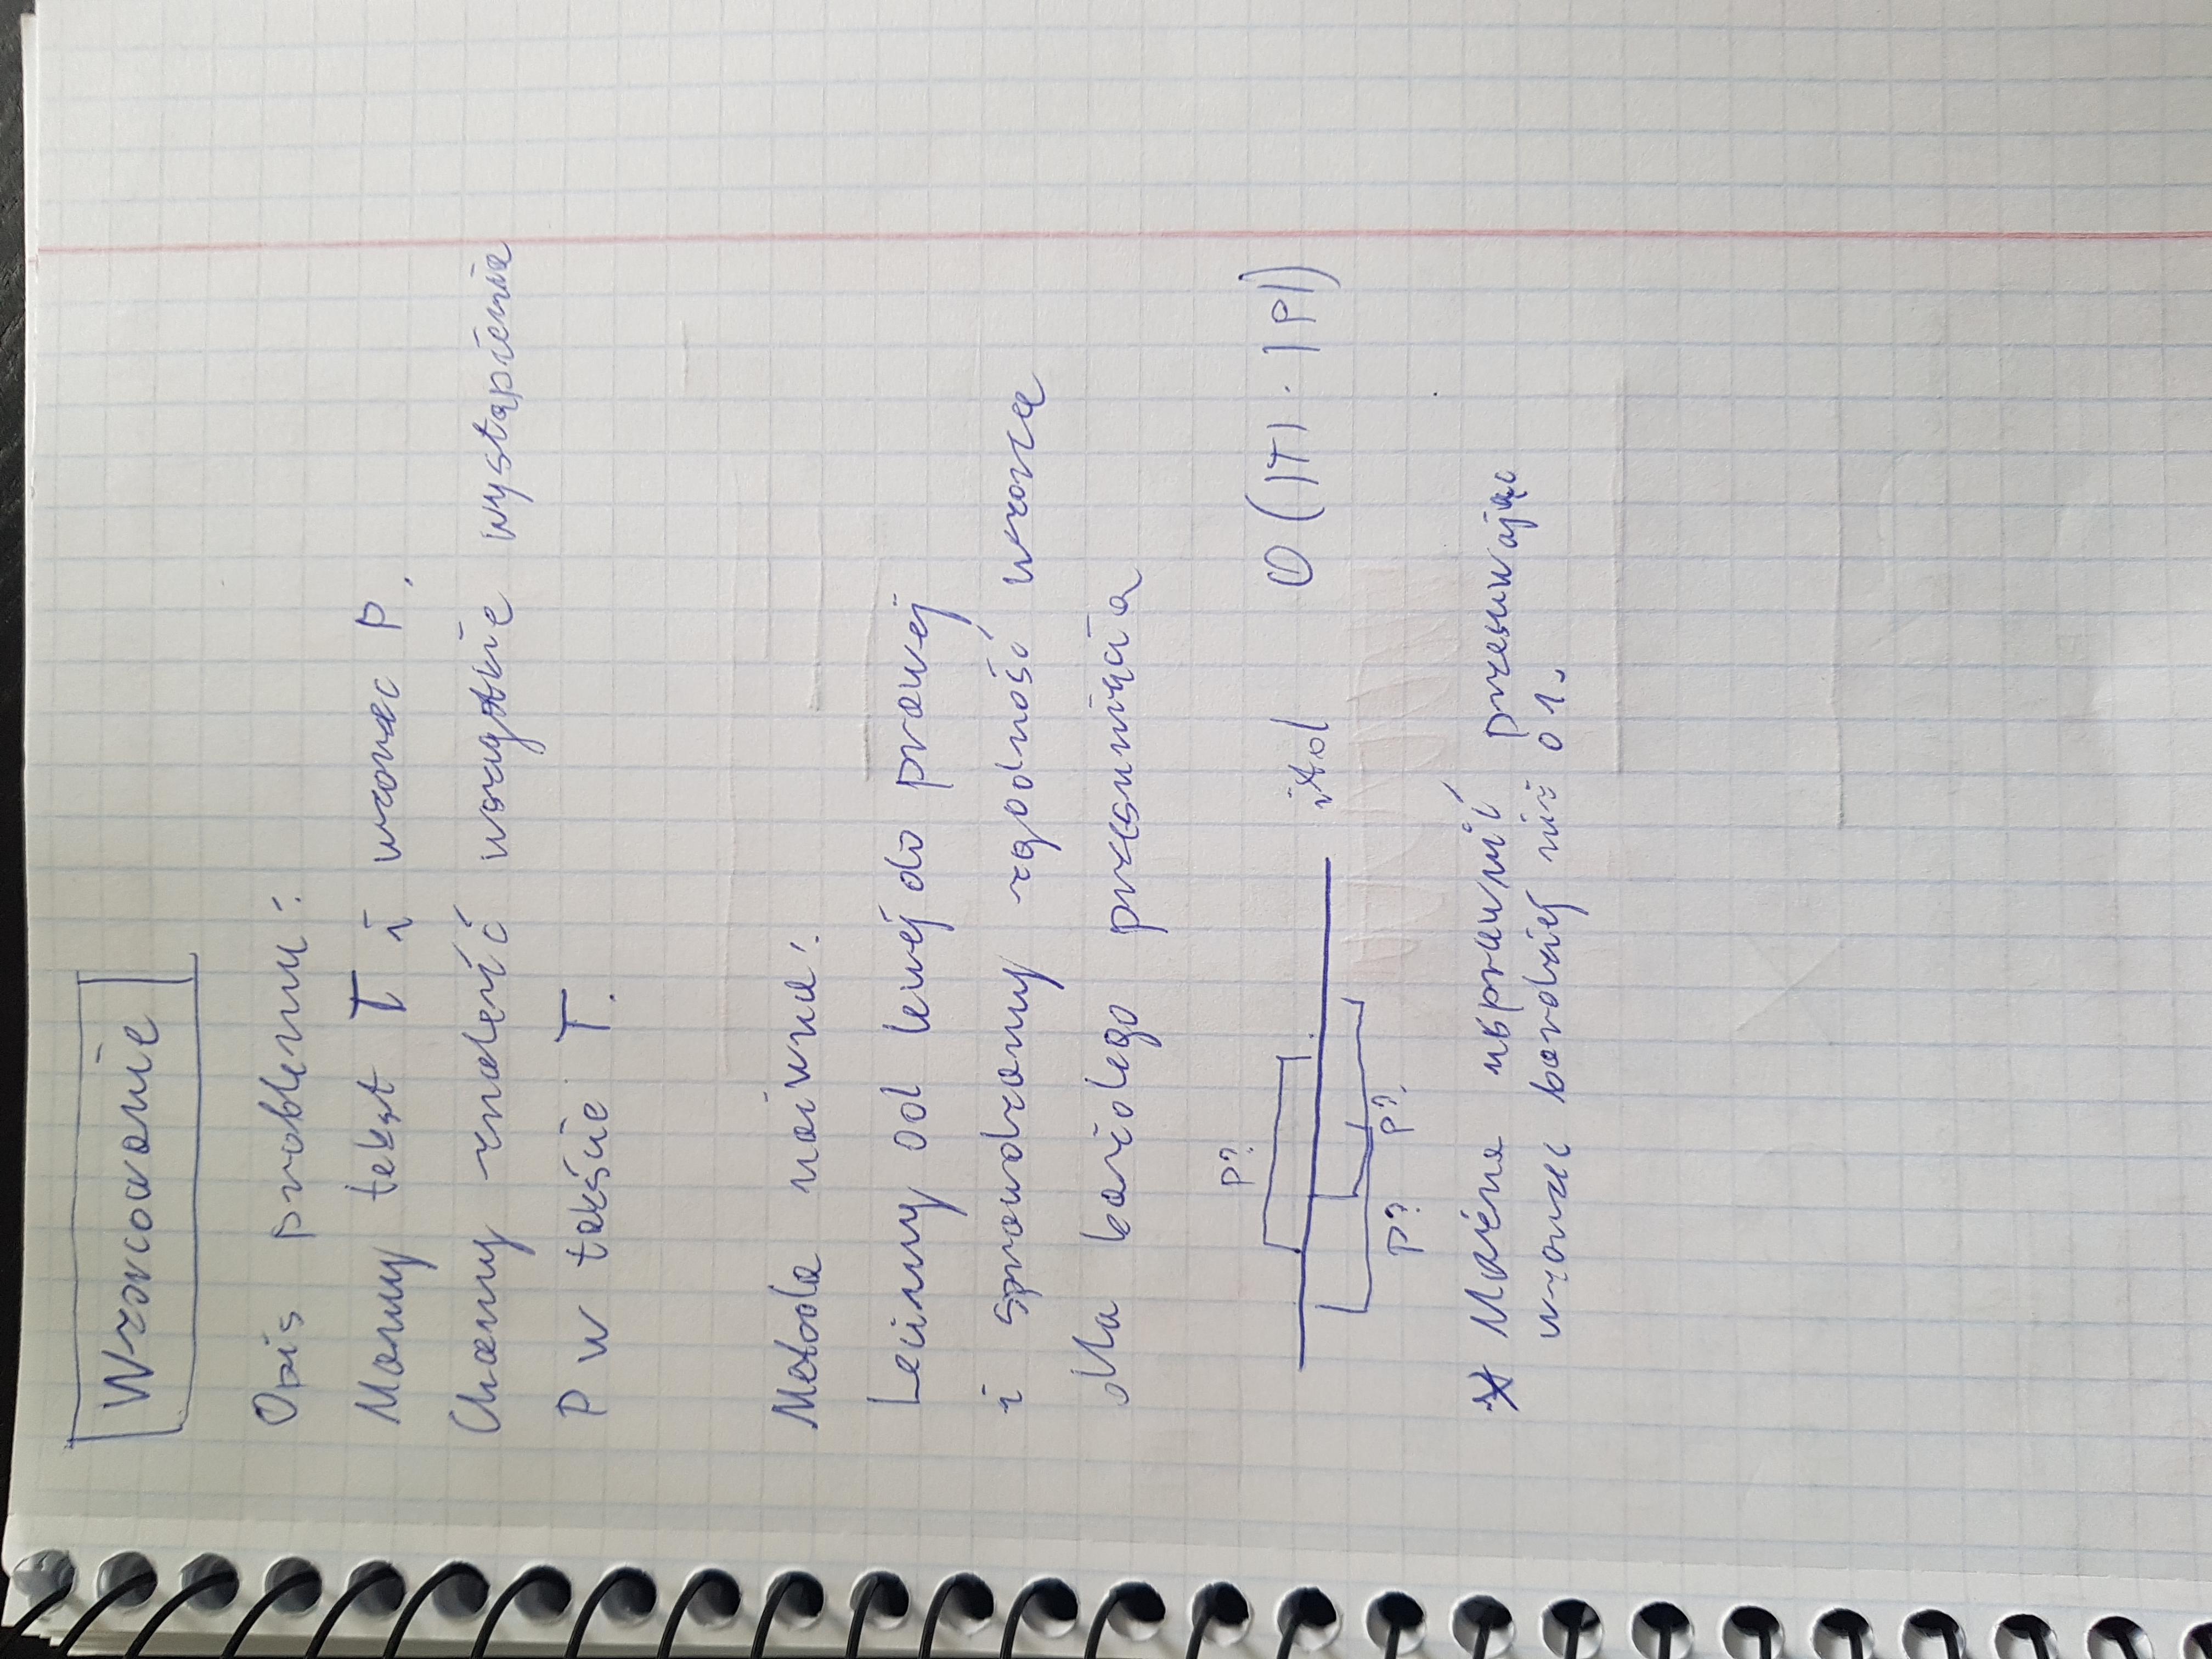 Wzorcowanie
Opis problemu:
Mamy tekst T i wzorzec P.
Chcemy znaleźć wszystkie wystąpienia
P w tekście T.
Metoda naiwna:
Lecimy od lewej do prawej
i sprawdzamy zgodność wzorca
dla każdego przesunięcia
P?
O(|T| · |P|)
P? P?
* Można usprawnić przesuwając
wzorzec bardziej niż o 1.